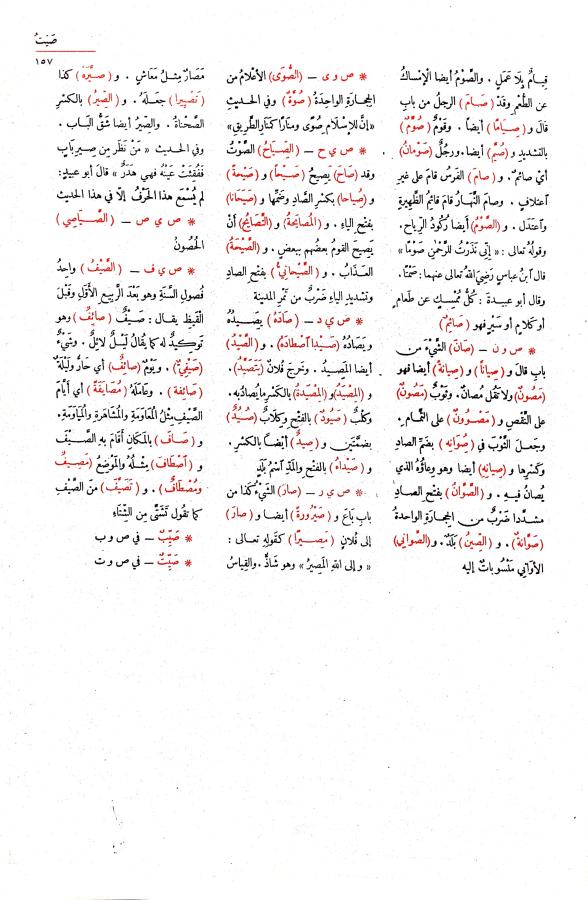 صَيّتٌ
١٥٧
قيامٌ بِلَا عَمَلٍ . والصَّوْمُ أيضا الإِمْساكُ
عن الطُّعْمِ وقَدْ (صَامَ) الرجلُ من بابِ
قال و (صِيَامًا) أيضاً . وقَوْمٌ (صُوَّمٌ)
بالتشديد و (صُيَّمٌ) أيضا . ورجُلٌ (صَوْمَانُ)
أىْ صائمٌ . و (صامَ) الفَرَسُ قامَ على غيرِ
اعتلافٍ . وصامَ النَّهارُ قامَ قائمُ الظَّهِيرةِ
واعتدَلَ . و (الصَّوْمُ) أيضا رُكُودُ الرِّياحِ .
وقولُهُ تعالى : « إِنِّي نَذَرْتُ لِلرَّحْمٰنِ صَوْمًا »
قال ابنُ عباس رَضِيَ اللهُ تعالى عنهما : صَمْتًا .
وقال أبو عبيدة : كُلُّ مُمْسِكٍ عن طَعَامٍ
أوكلامٍ أو سَيْرٍ فهو (صائِمٌ)
* ص و ن – (صَانَ) الشَّيْءَ من
باب قال و (صِيَاناً) و (صِيَانةً) أيضا فهو
(مَصُونٌ) ولا تَقُل مُصَانٌ . وثَوْبٌ (مَصُونٌ)
على النَّقْصِ و (مَصْوُونٌ) على التَّمَامِ .
وجَعلَ الثَّوْبَ في (صُوَانِهِ) بضَمِّ الصاد
وكَسْرِها و (صِيانِهِ) أيضا وهو وِعاؤُهُ الذي
يُصانُ فيه . و (الصَّوَّانُ) بفتح الصاد
مشدّدا ضَرْبٌ من الحِجارةِ الواحدةُ
(صَوَّانةٌ) . و (الصِّينُ) بَلَدٌ . و (الصَّوَانِي)
الأَوَانِي مَنْسُوباتٌ إليه
* ص و ى – (الصُّوَى) الأَعْلامُ من
الحِجارَةِ الواحدةُ (صُوَّةٌ) وفي الحديثِ
«إنّ للإسْلامِ صُوًى ومَنَارًا كَنَارِ الطَّرِيقِ»
* ص ي ح – (الصِّيَاحُ) الصَّوْتُ
وقد (صَاح) يَصِيحُ (صَيْحاً) و (صَيْحَةً)
و (صِيَاحا) بكَسْرِ الصادِ وضَمِّها و (صَيَحَانًا)
بفتح الياء . و (المُصَايَحَةُ) و (التَّصَايُحُ) أنْ
يَصِيحَ القومُ بعضُهم ببعضٍ . و (الصَّيْحَةُ)
العذَابُ . و (الصَّيْحانِيُّ) بفتح الصادِ
وتشديدِ الياء ضَرْبٌ من تَمْرِ المدينة
* ص ي د – (صَادَهُ) يَصِيدُهُ
و يَصَادُهُ (صَيْدًا) (اصْطَادَهُ) . و (الصَّيْدُ)
أيضا المَصِيدُ . وخرج فُلانٌ (يَتَصَيَّدُ) .
و (المِصْيَدُ) و (المِصْيَدَةُ) بالكسرِ ما يُصَادُ به .
وكَلْبٌ (صَيُودٌ) بالفتح وكِلَابٌ (صُيُدٌ)
بضمّتين و (صِيدٌ) أيضًا بالكسرِ .
و (صَيْدَاءُ) بالفتح والمدّ اسمُ بَلَدٍ
* ص ي ر – (صارَ) الشَّيْءُ كَذا من
بابِ بَاعَ و (صَيْرُورةً) أيضا و (صارَ)
إلى فُلانٍ (مَصِيرًا) كَقولِه تعالى :
« وإلى اللهِ المَصِيرُ » وهو شاذٌّ . والقِياسُ
مَصَارٌ مِثلُ مَعَاشٍ . و (صَيَّرَهُ) كذا
(تَصْيِيرا) جعلَهُ . و (الصِّيرُ) بالكسْرِ
الصِّحْنَاةُ . والصِّيرُ أيضا شَقُّ البَاب .
وفي الحديث « مَنْ نَظَر مِن صِيرِ بابٍ
فَفُقِئَتْ عَيْنُهُ فهي هَدَرٌ » قال أبو عبيدٍ :
لم يُسْمَعْ هذا الحَرْفُ إلّا في هذا الحديث
* ص ي ص – (الصَّيَاصِي)
الحُصُونُ
* ص ي ف – (الصَّيْفُ) واحِدُ
فُصولِ السَّنةِ وهو بَعْدَ الرَّبيعِ الأَوَّلِ وقَبْلَ
القَيْظِ يقال : صَيْفٌ (صائِفٌ) وهو
تَوكيدٌ له كما يُقالُ لَيْلٌ لائِلٌ . وشَيْءٌ
(صَيْفِيٌّ) . ويَوْمٌ (صائِفٌ) أي حارٌّ ولَيْلَةٌ
(صَائِفة) . وعامَلَهُ (مُصَايَفَةً) أي أيَّامَ
الصَّيفِ مِثْلُ المُعَاوَمَةِ والمُشَاهَرةِ والمُيَاوَمَةِ .
و (صَافَ) بالمكان أقامَ به الصَّيْفَ
و (اصْطَافَ) مِثْلُهُ والموْضِعُ (مَصِيفٌ)
(ومُصْطَافٌ) . و (تَصَيَّفَ) منَ الصَّيْفِ
كما تقول تَشَتَّى مِن الشِّتَاء
* صَيِّبٌ – في ص و ب
* صَيِّتٌ – في ص و ت